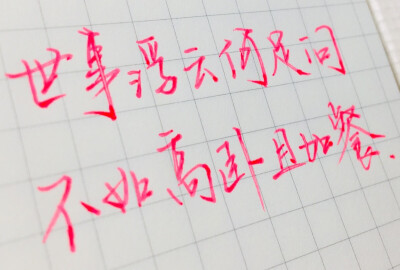 世事浮云何足问
不如高卧且加餐.